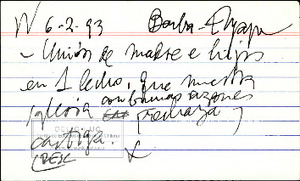 W 6-2-93
- Unión de madre e hijos
en 1 lecho, que nuestra
iglesia con buenas razones
rechaza y
castiga.